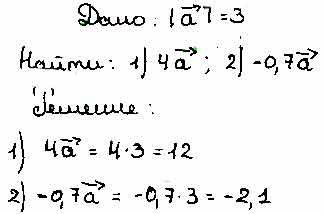 Дано: |a⃗| = 3
Найти: 1) 4a⃗; 2) -0,7a⃗
Решение:
1) 4a⃗ = 4·3 = 12
2) -0,7a⃗ = -0,7·3 = -2,1